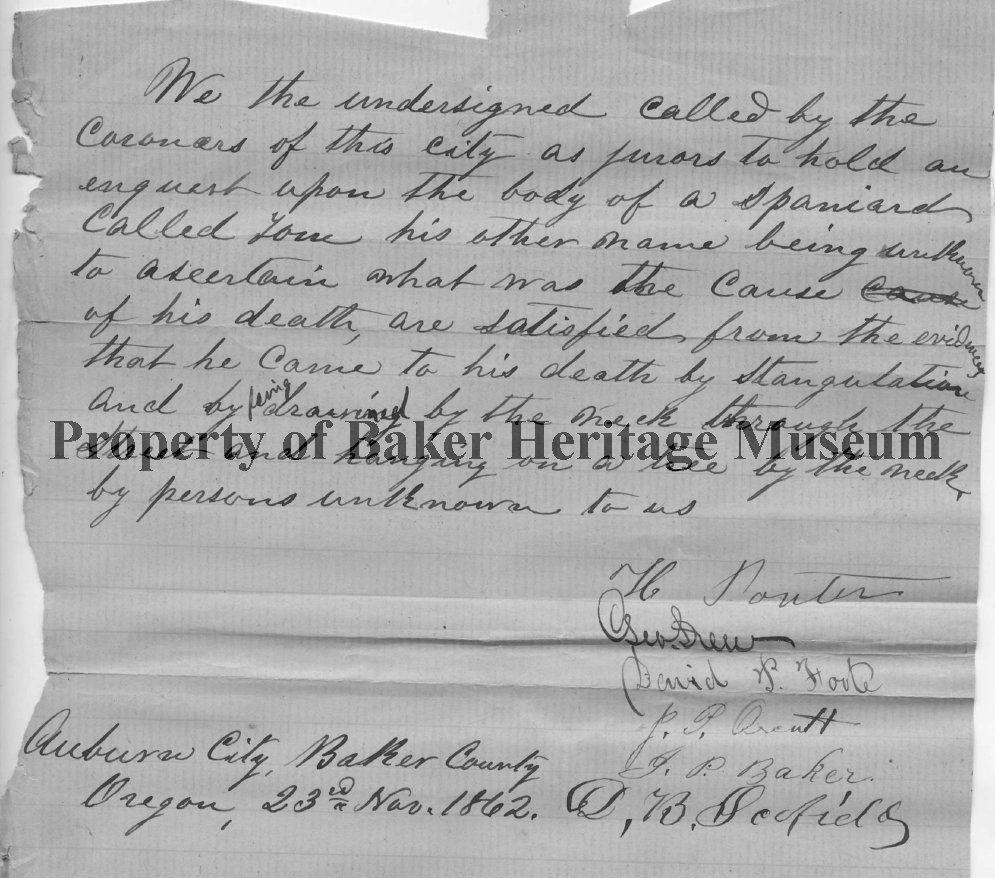 We the undersigned called by the
Coroners of this city as jurors to hold an
enquest upon the body of a Spaniard
Called Tom his other name being unknown
to ascertain what was the Cause cause
of his death, are satisfied from the evidence
that he Came to his death by Stangulation
and by being drawing by the neck through the
Property of Baker Heritage Museum
Street and hanging on a tree by the neck,
by persons unknown to us
H Porter
Geo. Drew
David S. Foote
J. P. Orcutt
J. P. Baker.
D, B. Scofield
Auburn City, Baker County
Oregon, 23rd Nov. 1862.